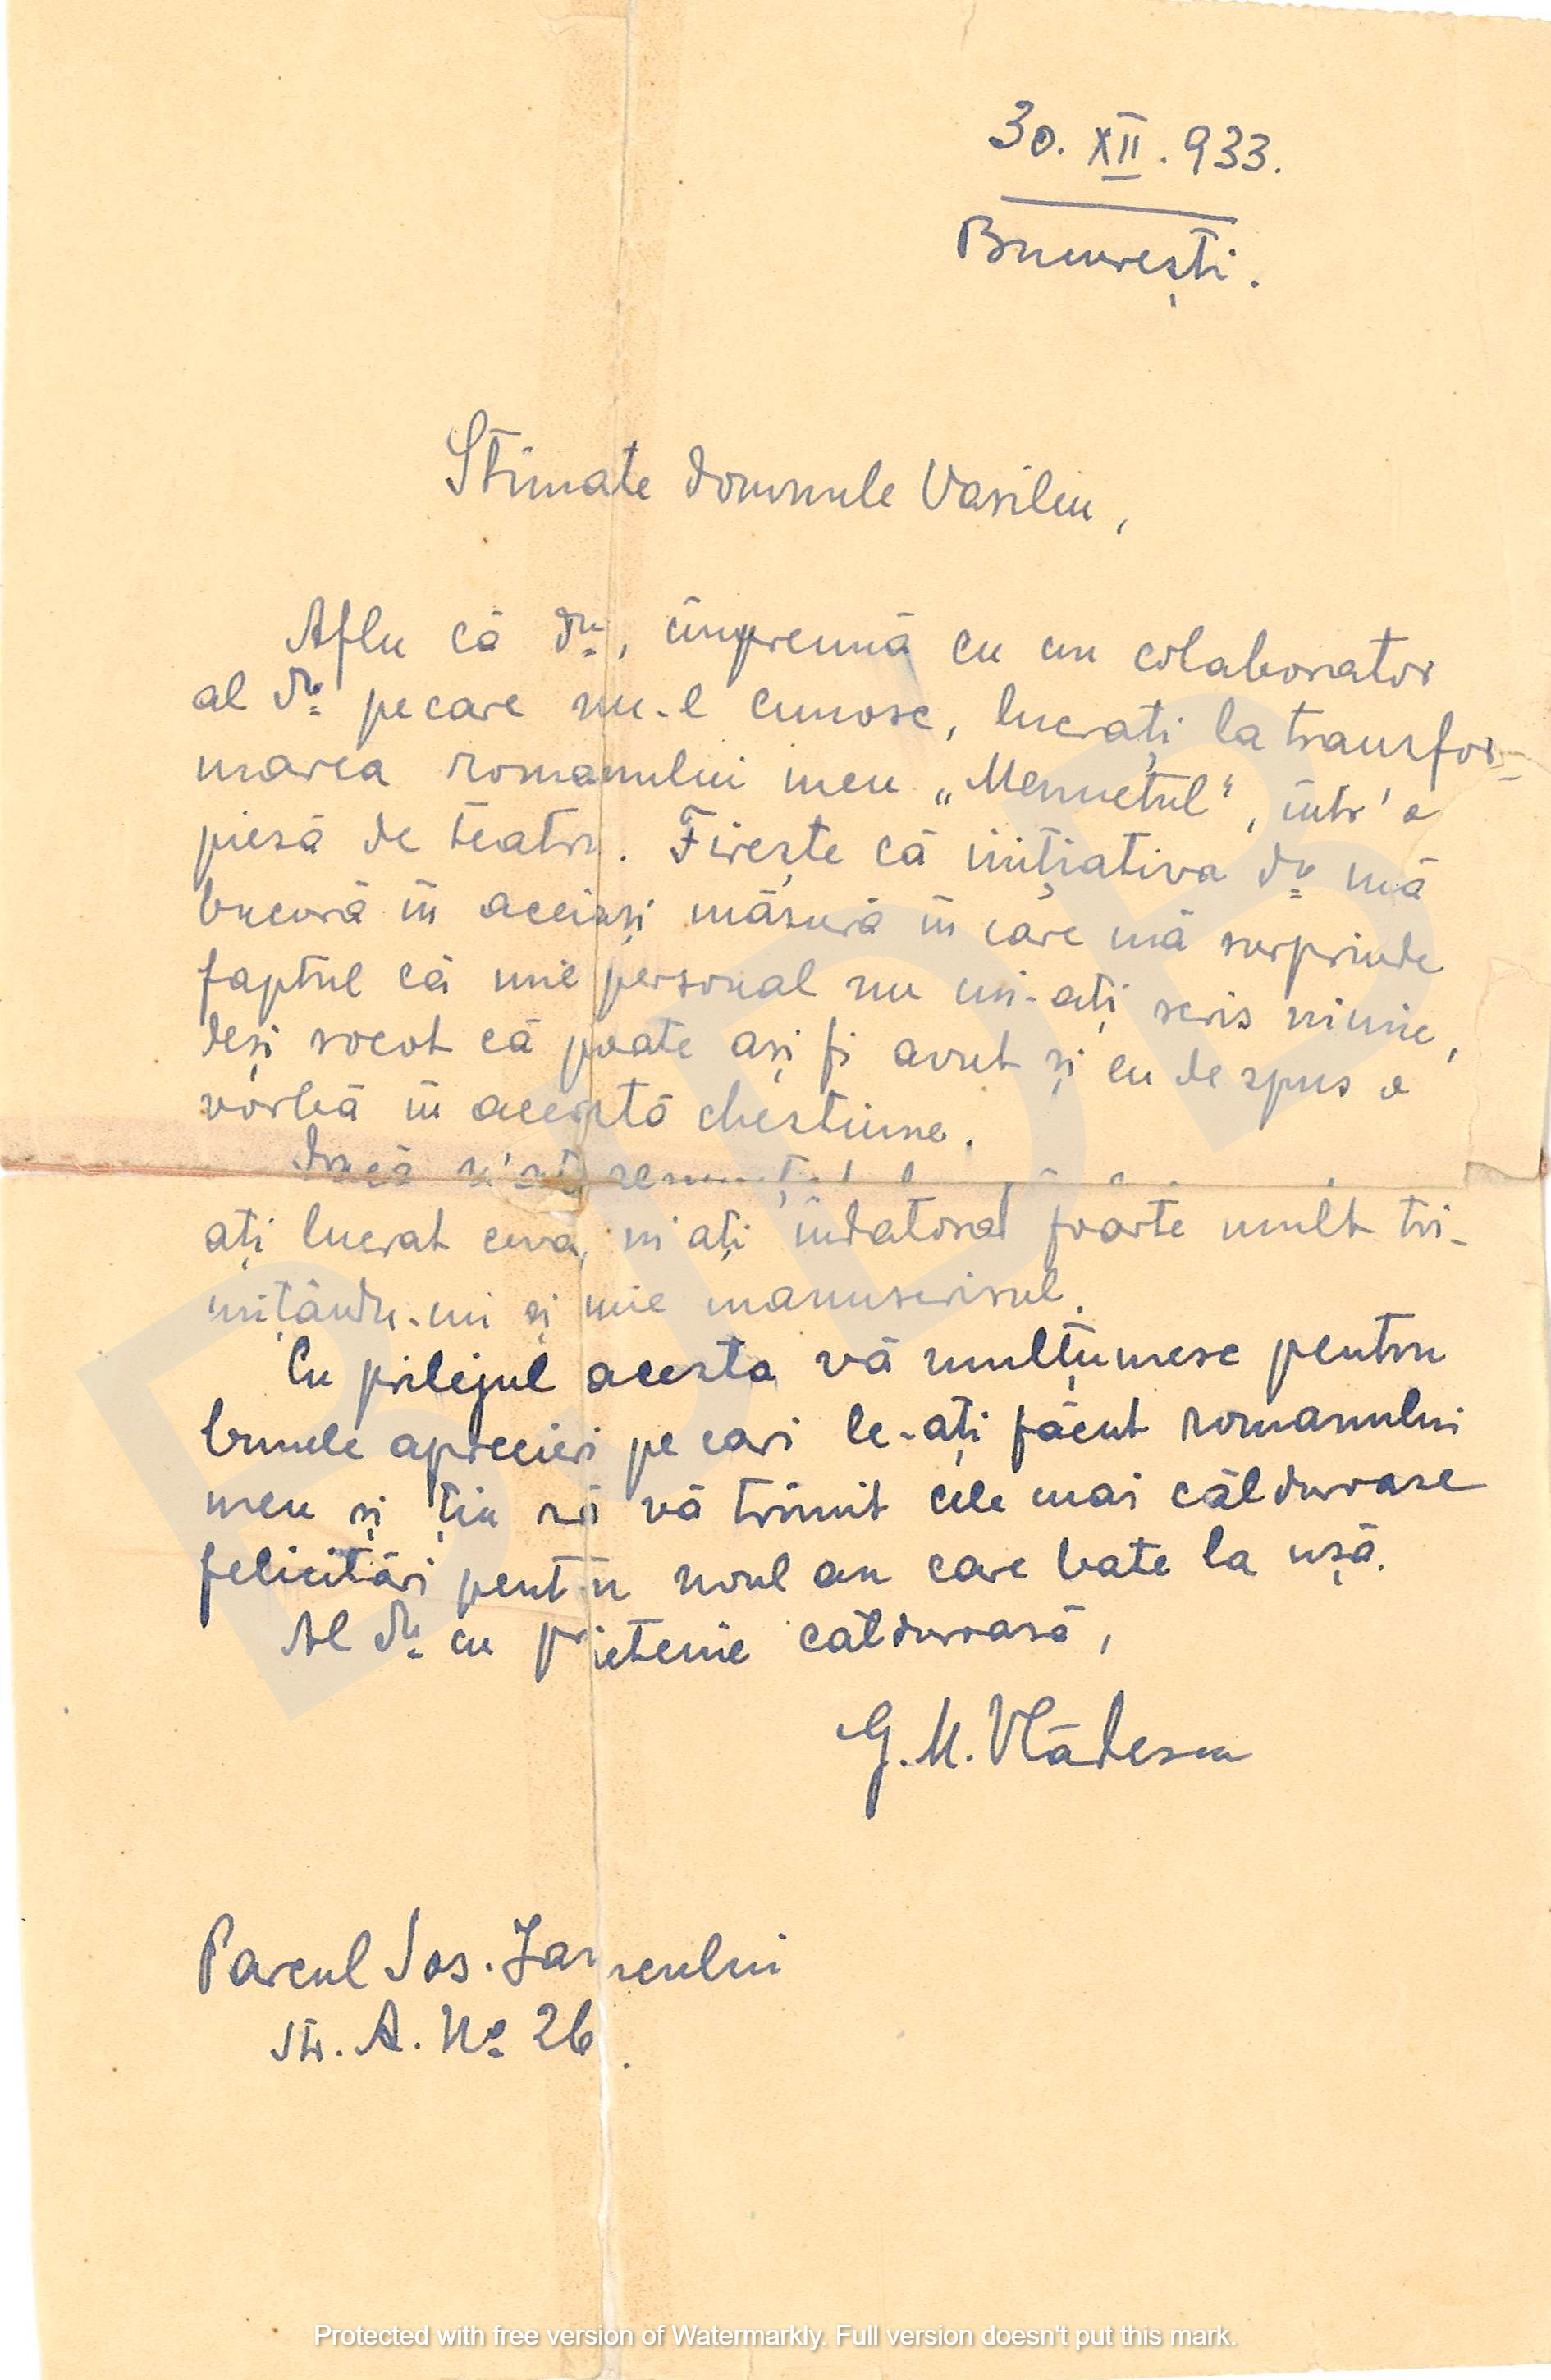 30. XII. 933.
București.
Stimate domnule Vasiliu,
Aflu că dv., împreună cu un colaborator
al dv. pe care nu-l cunosc, lucrați la transfor-
marea romanului meu „Menuetul", într'o
piesă de teatru. Firește că inițiativa dv. mă
bucură în aceiași măsură în care mă surprinde
faptul că mie personal nu mi-ați scris nimic,
deși socot că poate ași fi avut și eu de spus o
vorbă în această chestiune.
Dacă n'ați renunțat
ați lucrat ceva, m'ați îndatora foarte mult tri-
mițându-mi și mie manuscrisul.
Cu prilejul acesta vă mulțumesc pentru
bunele aprecieri pe cari le-ați făcut romanului
meu și țin să vă trimit cele mai călduroase
felicitări pentru noul an care bate la ușă.
Al dv. cu prietenie călduroasă,
G. M. Vlădescu
Parcul Sos. Jarului
Str. A. No 26.
BJDB
Protected with free version of Watermarkly. Full version doesn't put this mark.